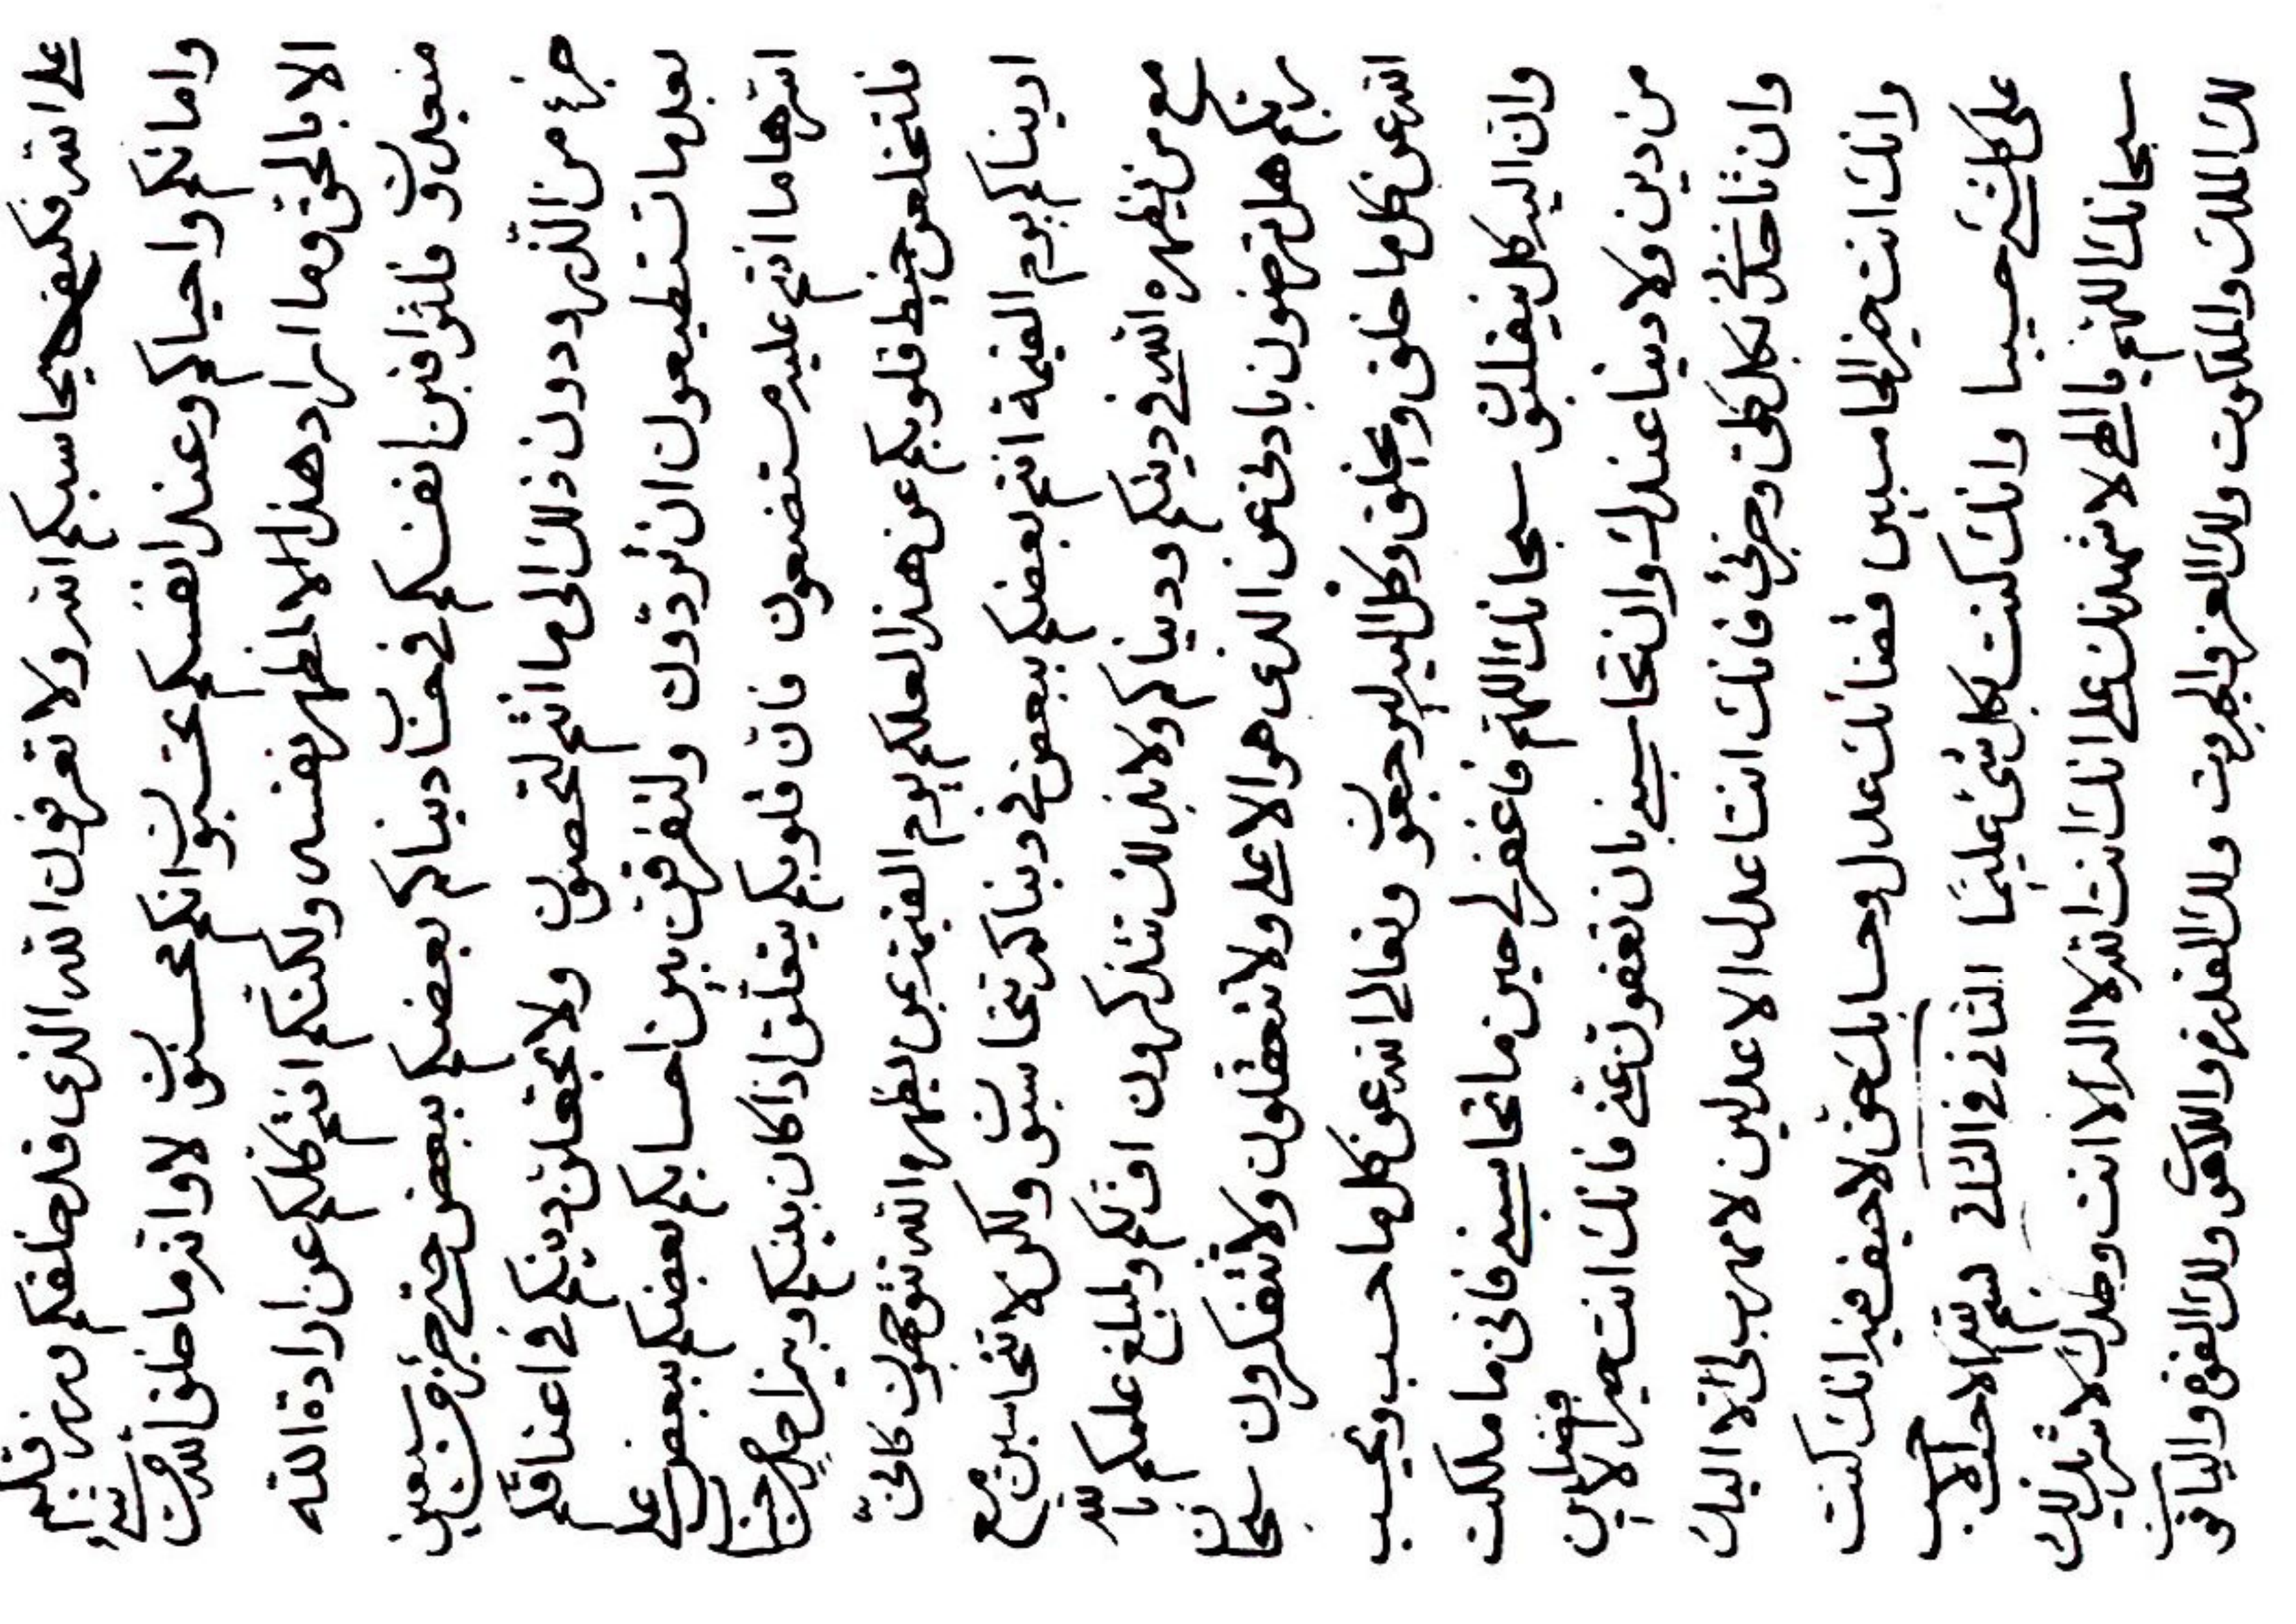 على الله فكيف يحاسبكم الله ولا تعرفون الله الذى قد خلقكم ورزقكم
واماتكم واحياكم وعند انفسكم تحتسبون انكم محسنون لا والله ما خلق الله من شئ
الا بالحق وما اراد هذا الا لمظهر نفسه ولكنكم انتم كلكم عن ارادة الله
منعبدون فلتراقبن انفسكم فى حساب دنياكم بعضكم ببعض حتى جزء من تسعين
جزء من الذر ودون ذلك الى ما انتم لتحصون ولا تجعلن دينكم فى اعناقكم
بعد ما تستطيعون ان تردون ولتفرقن بين احسابكم بعضكم ببعض على
انتهاء ما انتم عليه مستضيعون فان قلوبكم يتعلق اذا كان بينكم وبين احد حسابا
فلتخلعن خيط قلوبكم عن هذا لعلكم يوم القيمة بمن يظهره الله تتوجهون كانى
اريناكم يوم القيمة انتم بعضكم ببعض فى دنياكم تحاسبون ولكن لا تحاسبن مع
مع من يظهره الله فى دينكم ودنياكم ولا بذلك تتذكرون اف لكم ولمبلغ علمكم بالله
ربكم هل ترضون بادنى عن الذى هو الاعلى ولا تتعقلون ولا تتفكرون سبحان
الله عن كل ما خلق ويخلق وكل اليه ليرجعون وتعالى الله عن كل ما حسب ويحسب
وان اليه كل ينقلبون سبحانك اللهم فاغفر لى حين ما تحاسبنى فانى ما ملكت
من دين ولا دنيا عندك وان تحاسبنى بان تعفون عنى فانك انت خير الافضلين
وان تاخذنى بكل كلى وجزئى فانك انت اعدل الاعدلين لا مهرب لى الا اليك
وانك انت خير الحاسبين فضائك عدل وحسابك حق لا حيف فيه انك كنت
على كل شئ حسيبا وانك كنت بكل شئ عليما الثانى فى الثانى بسم الله الاحسب الاحسب
سبحانك اللهم يا الهى لاشهدنك على انك انت الله لا اله الا انت وحدك لا شريك لك
لك الملك والملكوت ولك العز والجبروت ولك القدرة واللاهوت ولك القوة والياقوت